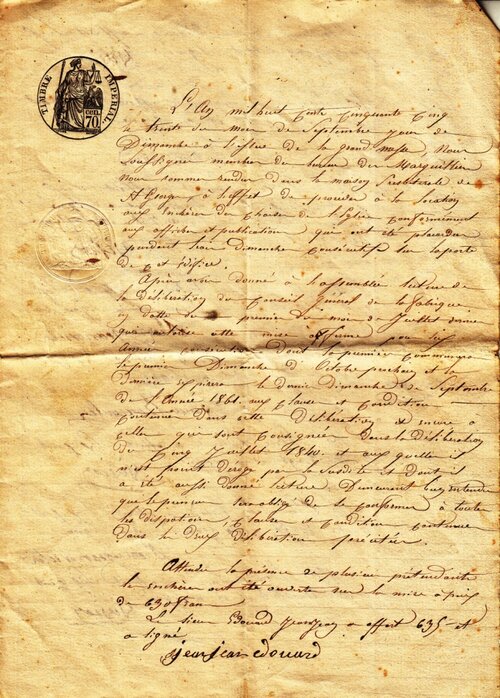 TIMBRE IMPERIAL.
CENT.
70
L'An mil huit cents cinquante cinq
le trente du mois de Septembre jour de
Dimanche à l'issue de la grand messe Nous
soussignés membres du bureau des Marguilliers
Nous sommes rendus dans la maison Presbiterale de
St à l'effet de procéder à la location
aux Enchères des Chaises de l'Eglise Conformément
aux affiches et publications qui ont été placardées
pendant trois dimanches Consécutifs sur la porte
de cet édifice.
Après avoir donné à l'assemblée lecture de
la délibération du Conseil Général de la fabrique
en datte du premier du mois de Juillet dernier
qui autorise cette mise afferme pour six
Années Consécutives dont la première Commencera
le premier Dimanche d'Octobre prochain et la
dernière Expirera le dernier dimanche de Septembre
de l'Année 1861. aux Clauses et Conditions
Contenues dans cette Délibération et encore à
celles que sont Consignées dans la délibération
du Cinq Juillet 1840. et aux quelles il
n'est point dérogé par la susdite et dont il
a été aussi donné lecture Demeurant bien entendu
que le preneur sera obligé de se Conformer à toutes
les dispositions, Clauses et Conditions Contenues
dans les deux délibérations précitées.
Attendu la présence de plusieurs prétendants
les enchères ont été ouvertes sur la mise à prix
de 630 francs
Le sieur Edouard Jeanjean a offert 635 et
a signé
jeanjean edouard